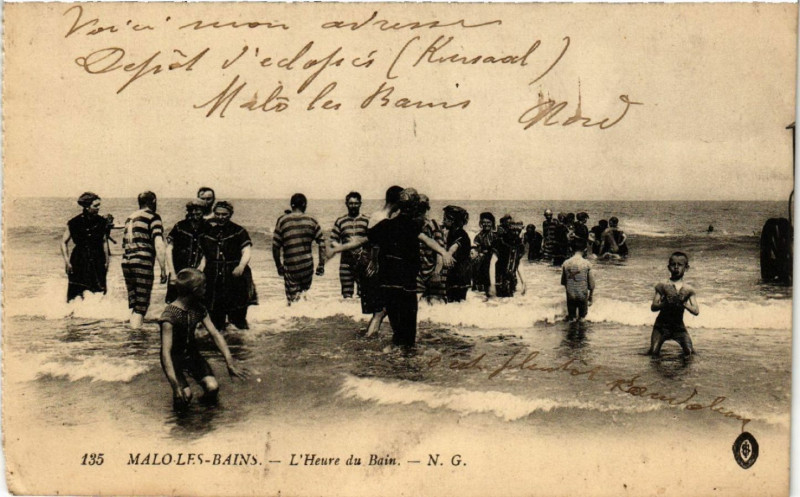 Voici mon adresse
Depôt d'eclopés (Kursaal)
Malo les Bains Nord
135 MALO-LES-BAINS. — L'Heure du Bain. — N. G.